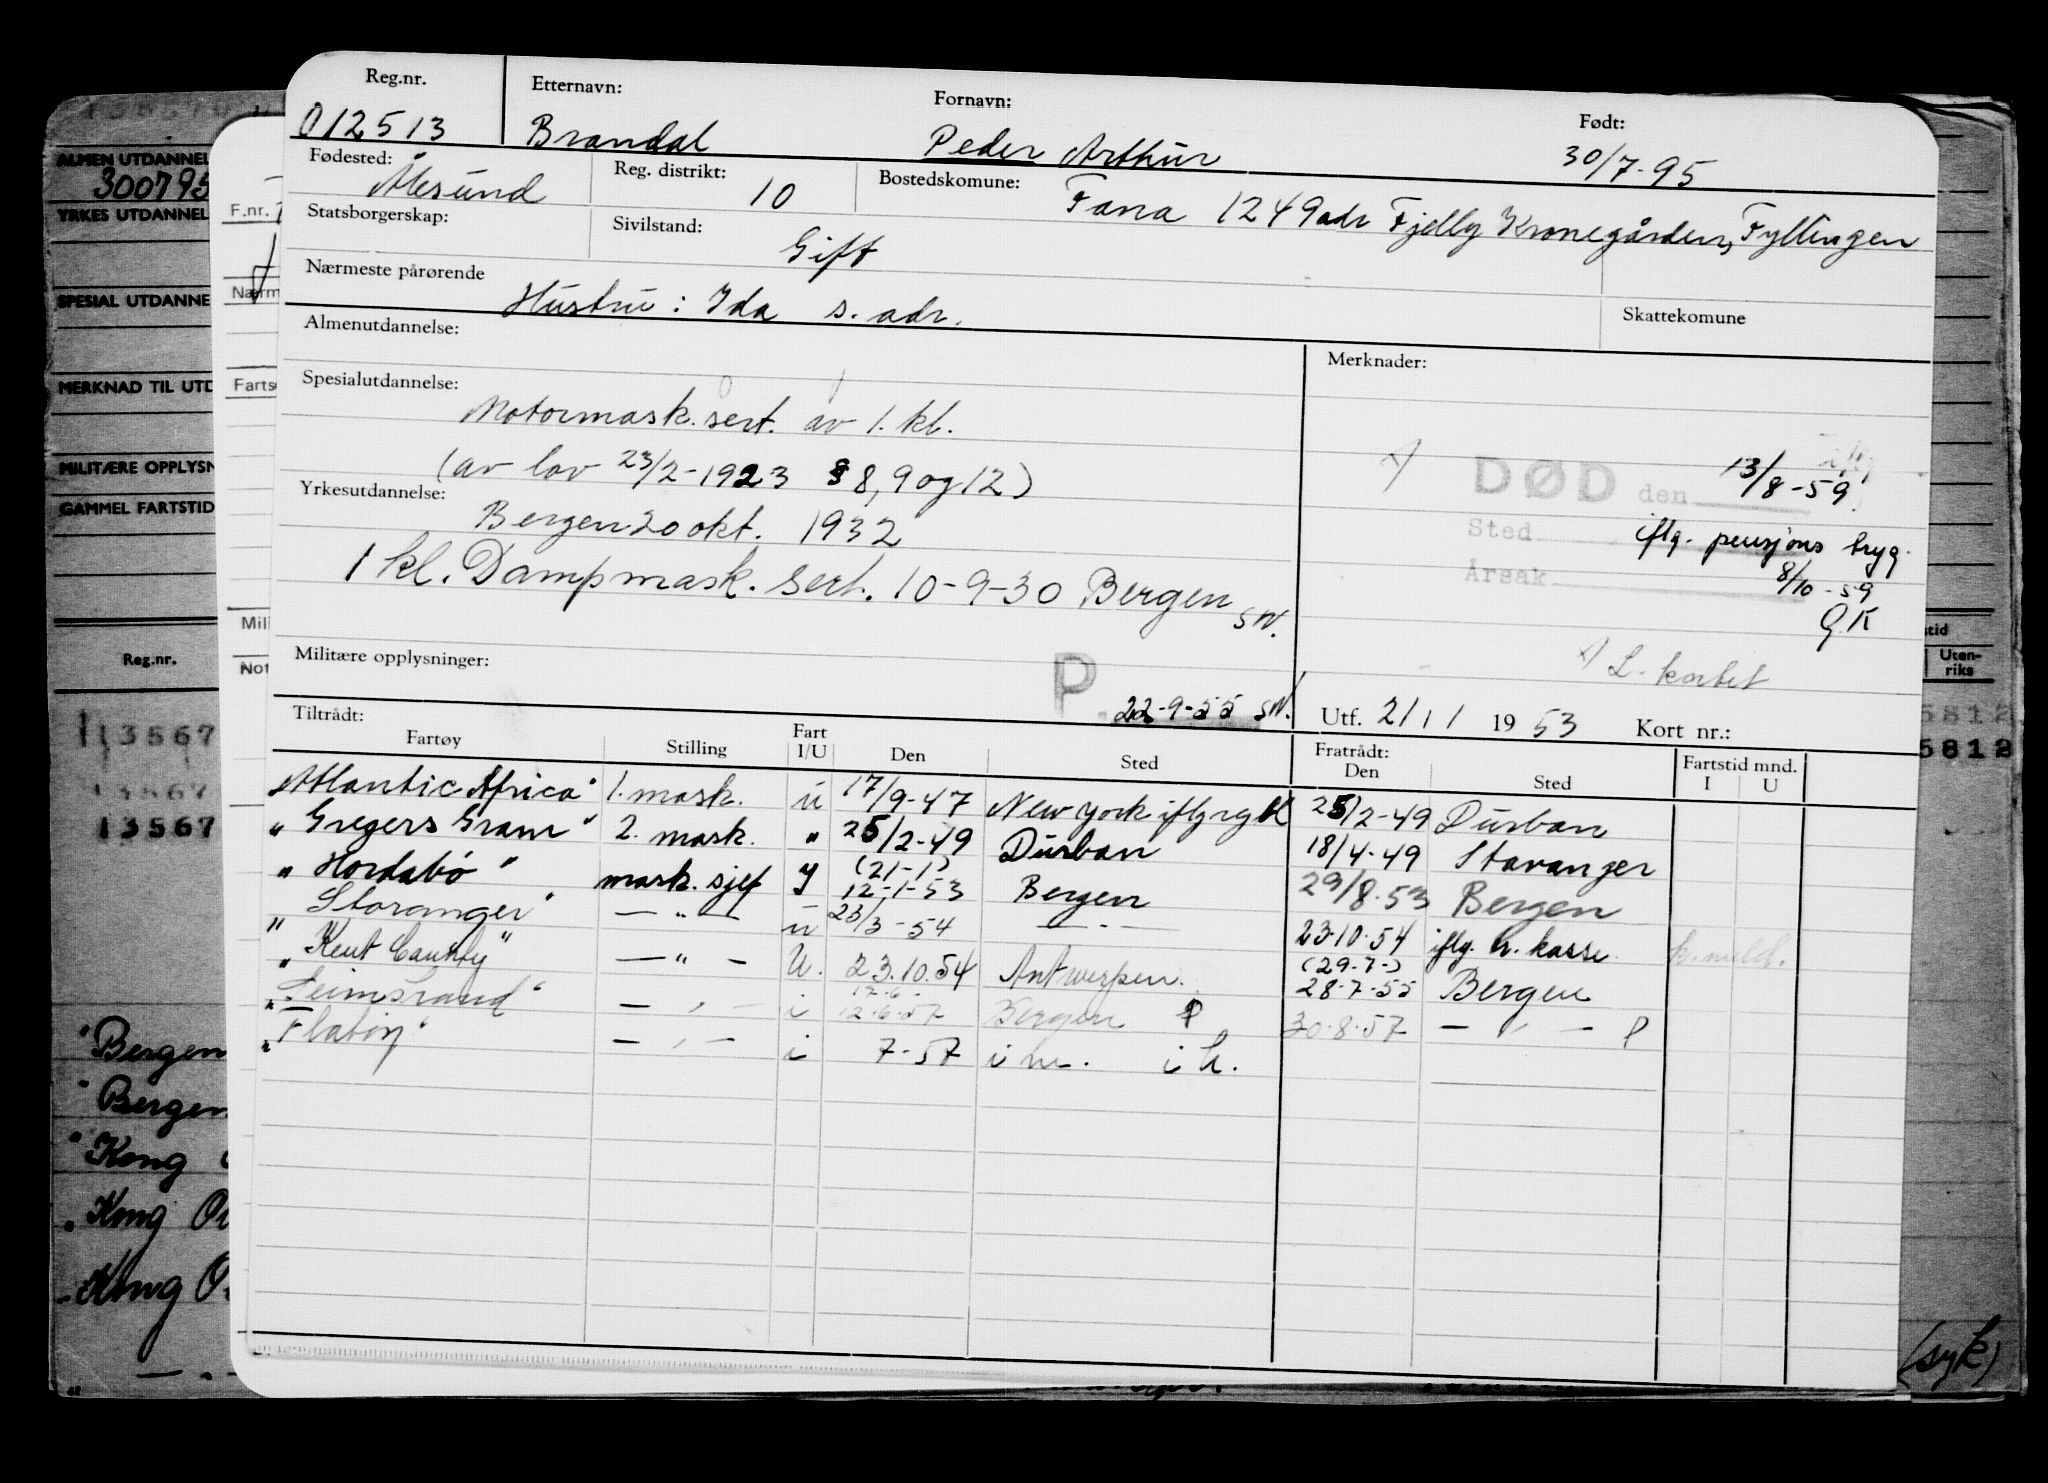 Reg.nr. Etternavn: Fornavn: Født:
012513 Brandal Peder Arthur 30/7-95
Fødested: Ålesund Reg. distrikt: 10 Bostedskomune: Fana 1249 adr Fjelly Kronegården, Fyllingen
Statsborgerskap: Sivilstand: Gift
Nærmeste pårørende Hustru: Ida s. adr. Skattekomune
Almenutdannelse: Merknader:
Spesialutdannelse:
Motormask. sert. av 1. kl.
(av lov 23/2-1923 § 8, 9 og 12)
DØD den 13/8-59
Yrkesutdannelse:
Bergen 20 okt. 1932
Sted iflg. pensjons tryg.
1 kl. Dampmask. sert. 10-9-30 Bergen SN.
Årsak 8/10-59
G.K
Militære opplysninger: P 22-9-55 SN.
L-kortet
Utf. 21/1 1953 Kort nr.:
Tiltrådt: Fratrådt: Fartstid mnd.
Fartøy Stilling Fart I/U Den Sted Den Sted I U
"Atlantic Africa" 1. mask. u 17/9-47 New York iflg rgbl 25/2-49 Durban
"Gregers Gram" 2. mask. " 25/2-49 Durban 18/4-49 Stavanger
"Hordabø" mask. sjef I (21-1) 12-1-53 Bergen 29/8-53 Bergen
"Storanger" — " — u 23/3-54 — " — 23.10.54 iflg. h. kasse
"Kent County" — " — U. 23.10.54 Antwerpen. (29-7-) 28-7-55 Bergen
"Leimstrand" — " — i 12-6-57 Bergen P 30-8-57 — " — P
"Flatøy" — " — i 7-57 i m. i h.
ALMEN UTDANNEL
300795
YRKES UTDANNEL
SPESIAL UTDANNE
MERKNAD TIL UTD
MILITÆRE OPPLYSN
GAMMEL FARTSTID
Reg.nr.
13567
13567
13567
"Bergen
"Bergen
"Kong
"Kong
Kong
F.nr.
Nærm
Fartse
Mili
Not
tid
Uten-
riks
5812
5812
(syk)